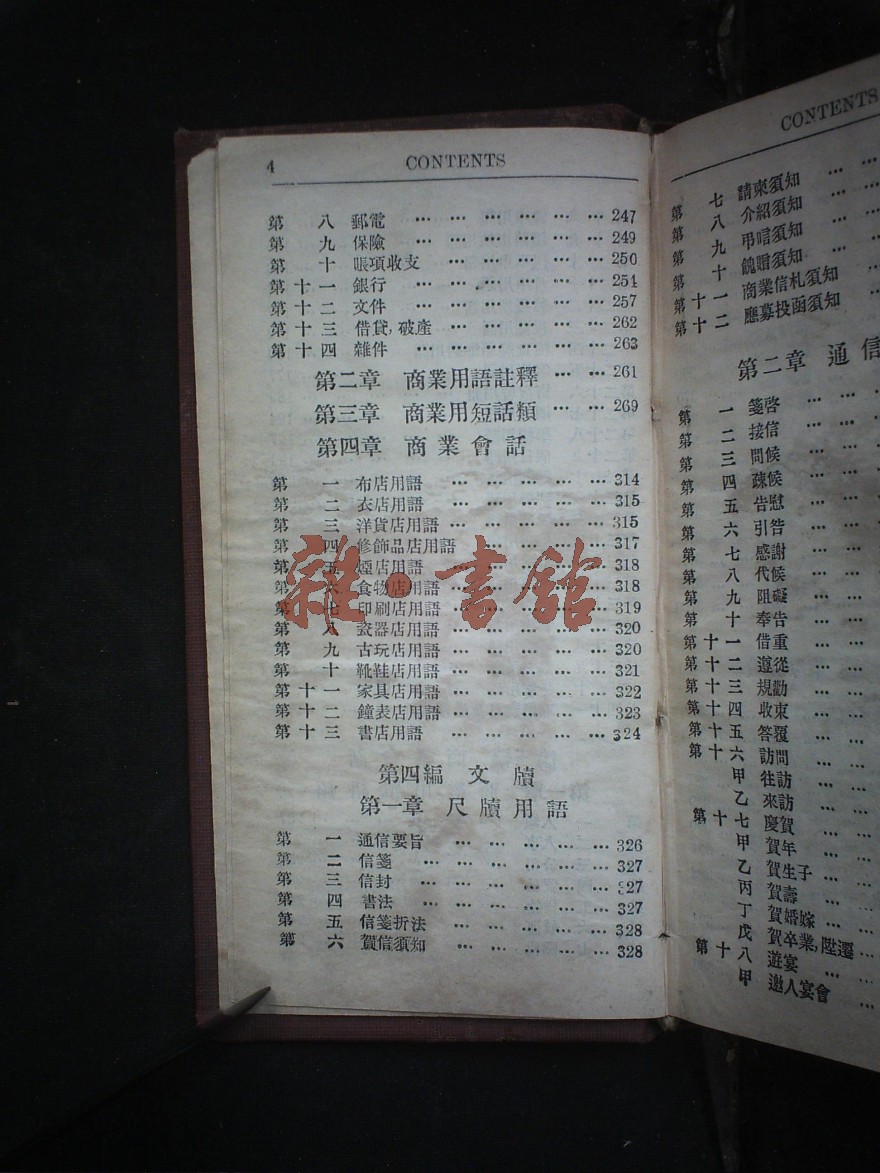 4 CONTENTS
第 八 郵電 … … … … … … 247
第 九 保險 … … … … … … 249
第 十 賬項收支 … … … … … 250
第十一 銀行 … … … … … … 254
第十二 文件 … … … … … … 257
第十三 借貸,破產 … … … … … 262
第十四 雜件 … … … … … … 263
第二章 商業用語註釋 … … 261
第三章 商業用短話類 … … 269
第四章 商業會話
第 一 布店用語 … … … … … 314
第 二 衣店用語 … … … … … 315
第 三 洋貨店用語 … … … … … 315
第 四 修飾品店用語 … … … … 317
第 五 煙店用語 … … … … … 318
第 六 食物店用語 … … … … … 318
第 七 印刷店用語 … … … … … 319
第 八 瓷器店用語 … … … … … 320
第 九 古玩店用語 … … … … … 320
第 十 靴鞋店用語 … … … … … 321
第十一 家具店用語 … … … … … 322
第十二 鐘表店用語 … … … … … 323
第十三 書店用語 … … … … … 324
第四編 文牘
第一章 尺牘用語
第 一 通信要旨 … … … … … 326
第 二 信箋 … … … … … … 327
第 三 信封 … … … … … … 327
第 四 書法 … … … … … … 327
第 五 信箋折法 … … … … … 328
第 六 賀信須知 … … … … … 328
雜·書館
CONTENTS
第 七 請柬須知 … …
第 八 介紹須知 … …
第 九 弔唁須知 … …
第 十 餽贈須知 … …
第十一 商業信札須知 …
第十二 應募投函須知 …
第二章 通信
第 一 箋啓 … …
第 二 接信 … …
第 三 問候 … …
第 四 疎候 … …
第 五 告慰 … …
第 六 引咎 … …
第 七 感謝 … …
第 八 代候 … …
第 九 阻礙 … …
第 十 奉告 … …
第十一 借重 … …
第十二 遵從 … …
第十三 規勸 … …
第十四 收束 … …
第十五 答覆 … …
第十六 訪問 … …
甲 往訪 … …
乙 來訪 … …
第十七 慶賀 … …
甲 賀年 … …
乙 賀生子 … …
丙 賀壽 … …
丁 賀婚嫁 … …
戊 賀卒業,陞遷 …
第十八 遊宴 …
甲 邀人宴會 …